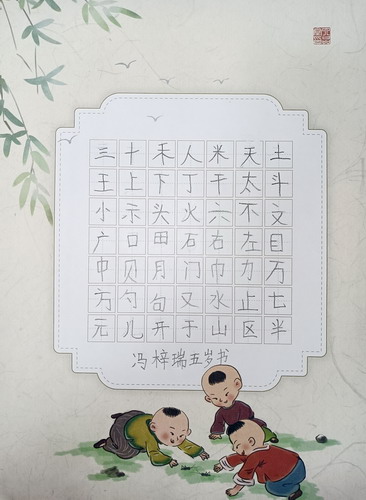 三十禾人米天土
王上下丁干太斗
小示头火六不文
广口田石右左目
中贝月门巾力万
方勺句又水止七
元儿开于山区半
冯梓瑞五岁书